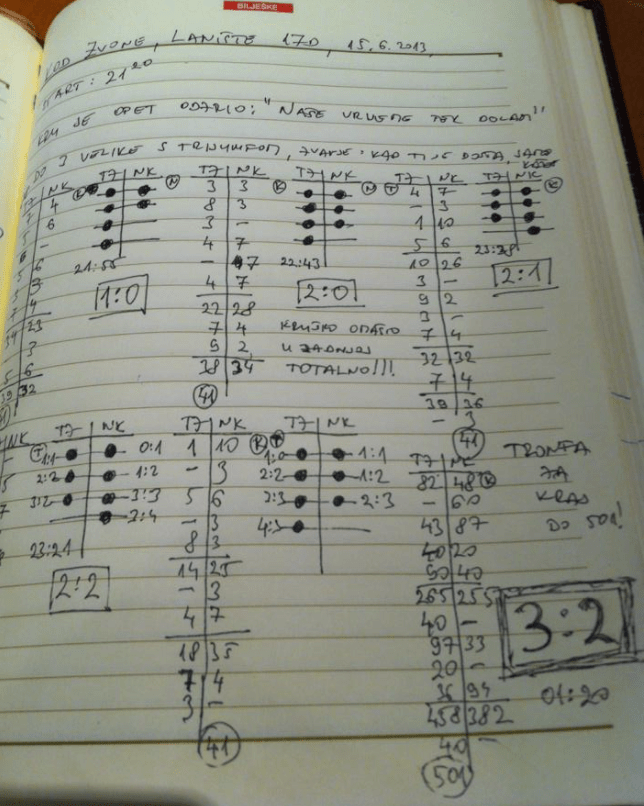 BILJEŠKE
KOD ZVONE, LANIŠTE 17D, 15.6.2013.
START: 21²⁰
JE OPET ODARIO: "NAŠE VRIJEME TEK DOLAZI"
DO 3 VELIKE S TRIJUMFOM, ZVANJE: KAD TI JE DOŠTA,
T7 NK T7 NK T7 NK T7 NK T7 NK T7 NK
4
6
-
6
3
4
23
3
6
39 32
21:55
1:0
3 3
8 3
3 -
4 7
- 7
4 7
22 28
7 4
9 2
38 34
41
22:43
2:0
KRUŠKO ODAŠIO
U ZADNJOJ
TOTALNO!!!
4 7
- 3
1 10
5 6
10 26
3 -
9 2
3 -
7 4
32 32
7 4
39 36
- 3
41
23:28
2:1
NK
T7 NK
T 1:1 0:1
2:2 1:2
3:2 3:3
3:4
23:21
2:2
T7 NK
1 10
- 3
5 6
- 3
8 3
14 25
- 3
4 7
18 35
7 4
3 -
41
K T T7 NK
1:0 1:1
2:2 1:2
3:3 2:3
4:3
T7 NK
82 48
- 60
43 87
40 20
90 40
265 255
40 -
97 33
20 -
36 94
458 382
40 -
501
TRONFA
ZA
KRAJ
DO 501!
3:2
01:20